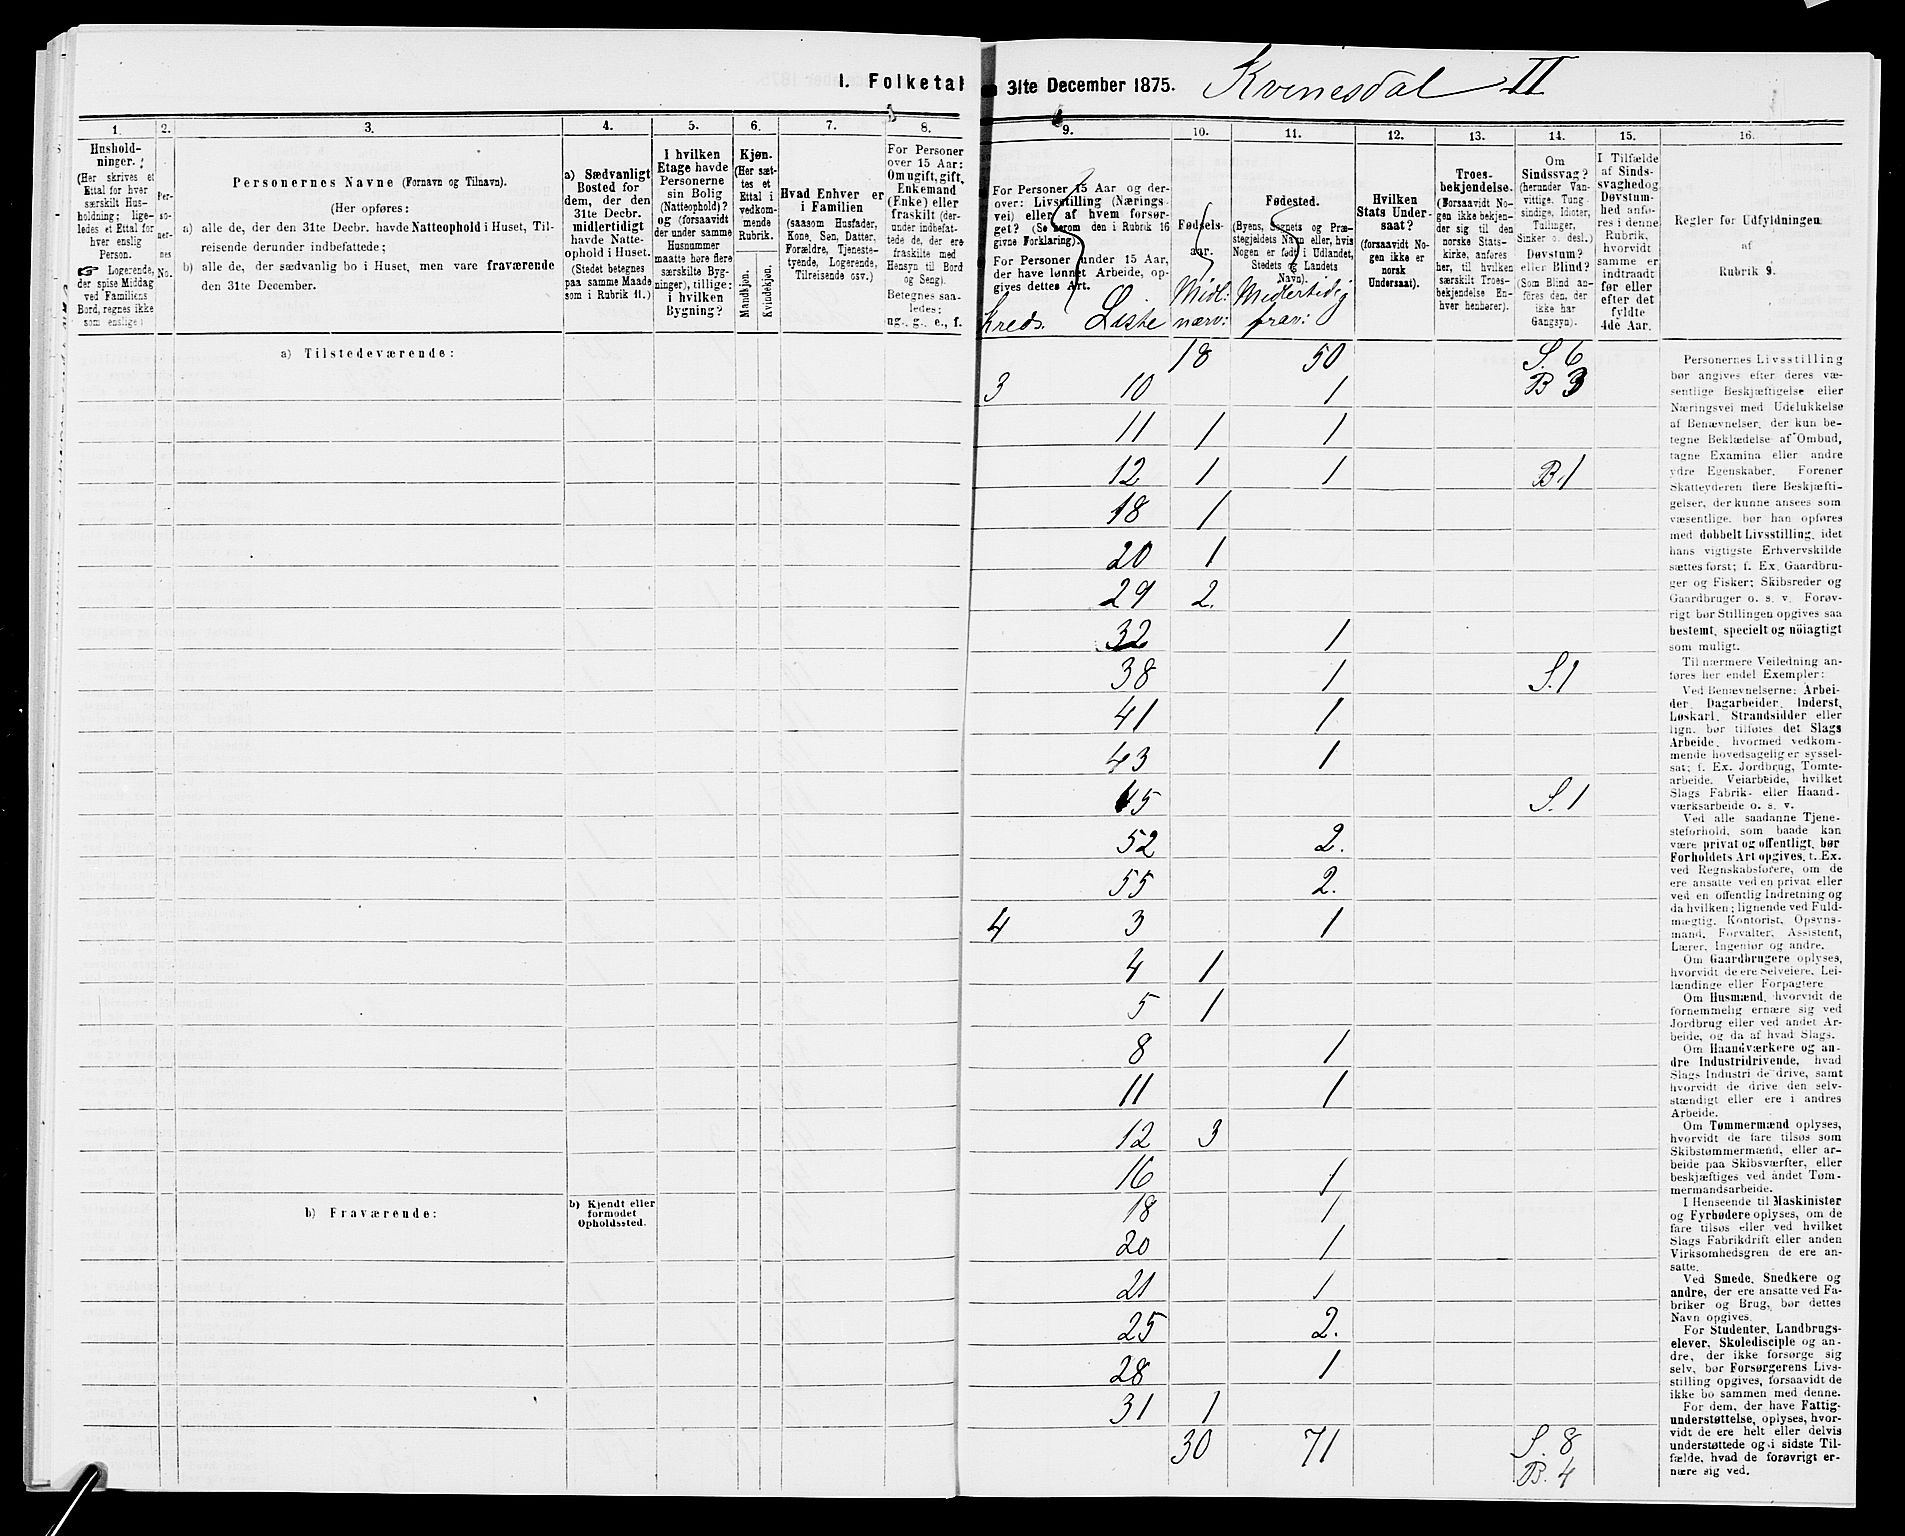 I. Folketal
31te December 1875. Kvinesdal II
1.
2.
3.
4.
5.
6.
7.
8.
9.
10.
11.
12.
13.
14.
15.
16.
Hushold-
ninger.
(Her skrives et
Ettal for hver
særskilt Hus-
holdning; lige-
ledes et Ettal for
hver enslig
Person.
☞ Logerende,
der spise Middag
ved Familiens
Bord, regnes ikke
som enslige)
Per-
so-
ner-
nes
No.
Personernes Navne (Fornavn og Tilnavn).
(Her opføres:
a) alle de, der den 31te Decbr. havde Natteophold i Huset, Til-
reisende derunder indbefattede;
b) alle de, der sædvanlig bo i Huset, men vare fraværende
den 31te December.
a) Sædvanligt
Bosted for
dem, der den
31te Decbr.
midlertidigt
havde Natte-
ophold i Huset.
(Stedet betegnes
paa samme Maade
som i Rubrik 11.)
I hvilken
Etage havde
Personerne
sin Bolig
(Natteophold)?
og (forsaavidt
der under samme
Husnummer
maatte høre flere
særskilte Byg-
ninger), tillige:
i hvilken
Bygning?
Kjøn.
(Her sæt-
tes et
Ettal i
vedkom-
mende
Rubrik.
Mandkjøn.
Kvindekjøn.
Hvad Enhver er
i Familien
(saasom Husfader,
Kone, Søn, Datter,
Forældre, Tjeneste-
tyende, Logerende,
Tilreisende osv.)
For Personer
over 15 Aar:
Om ugift, gift,
Enkemand
(Enke) eller
fraskilt (der-
under indbefat-
tede de, der ere
fraskilte med
Hensyn til Bord
og Seng).
Betegnes saa-
ledes:
ug., g., e., f.
For Personer 15 Aar og der-
over: Livsstilling (Nærings
vei) eller af hvem forsør-
get? (Se herom den i Rubrik 16
givne Forklaring).
For Personer under 15 Aar,
der have lønnet Arbeide, op-
gives dettes Art.
Kreds. Liste
Fødsels-
aar.
Midl:
nærv:
Fødested.
(Byens, Sognets og Præ-
stegjeldets Navn eller, hvis
Nogen er født i Udlandet,
Stedets og Landets
Navn).
Midlertidig
frav:
Hvilken
Stats Under-
saat?
(forsaavidt No-
gen ikke er
norsk
Undersaat).
Troes-
bekjendelse.
(Forsaavidt No-
gen ikke bekjen-
der sig til den
norske Stats-
kirke, anføres
her, til hvilken
særskilt Troes-
bekjendelse En-
hver henhører).
Om
Sindssvag?
(herunder Van-
vittige, Tung-
sindige, Idioter,
Tullinger,
Sinker o. desl.)
Døvstum?
eller Blind?
(Som Blind an-
føres den, der
ikke har
Gangsyn).
I Tilfælde
af Sinds-
svaghed og
Døvstum-
hed anfø-
res i denne
Rubrik,
hvorvidt
samme er
indtraadt
før eller
efter det
fyldte
4de Aar.
Regler for Udfyldningen
af
Rubrik 9.
a) Tilstedeværende:
18 50 S. 6
3 10 1 B 3
11 1 1
12 1 1 B.1
18 1
20 1
29 2.
32 1
38 1 S.1
41 1
43 1
45 S.1
52 2.
55 2.
4 3 1
4 1
5 1
8 1
11 1
12 3
16 1
b) Fraværende:
b) Kjendt eller
formodet
Opholdssted.
18 1
20 1
21 1
25 2.
28 1
31 1
30 71 S. 8
B. 4
Personernes Livsstilling
bør angives efter deres væ-
sentlige Beskjæftigelse eller
Næringsvei med Udelukkelse
af Benævnelser, der kun be-
tegne Beklædelse af Ombud,
tagne Examina eller andre
ydre Egenskaber. Forener
Skatteyderen flere Beskjæfti-
gelser, der kunne ansees som
væsentlige, bør han opføres
med dobbelt Livsstilling, idet
hans vigtigste Erhvervskilde
sættes først; f. Ex. Gaardbru-
ger og Fisker; Skibsreder og
Gaardbruger o. s. v. Forøv-
rigt bør Stillingen opgives saa
bestemt, specielt og nöiagtigt
som muligt.
Til nærmere Veiledning an-
føres her endel Exempler:
Ved Benævnelserne: Arbei-
der, Dagarbeider, Inderst,
Løskarl, Strandsidder eller
lign. bør tilføies det Slags
Arbeide, hvormed vedkom-
mende hovedsagelig er syssel-
sat; f. Ex. Jordbrug, Tomte-
arbeide, Veiarbeide, hvilket
Slags Fabrik- eller Haand-
værksarbeide o. s. v.
Ved alle saadanne Tjene-
steforhold, som baade kan
være privat og offentligt, bør
Forholdets Art opgives, t. Ex.
ved Regnskabsførere, om de
ere ansatte ved en privat eller
ved en offentlig Indretning og
da hvilken; lignende ved Fuld-
mægtig, Kontorist, Opsyns-
mand, Forvalter, Assistent,
Lærer, Ingeniør og andre.
Om Gaardbrugere oplyses,
hvorvidt de ere Selveiere, Lei-
lændinge eller Forpagtere
Om Husmænd, hvorvidt de
fornemmelig ernære sig ved
Jordbrug eller ved andet Ar-
beide, og da af hvad Slags.
Om Haandværkere og an-
dre Industridrivende, hvad
Slags Industri de drive, samt
hvorvidt de drive den selv-
stændigt eller ere i andres
Arbeide.
Om Tømmermænd oplyses,
hvorvidt de fare tilsøs som
Skibstømmermænd, eller ar-
beide paa Skibsværfter, eller
beskjæftiges ved andet Tøm-
mermandsarbeide.
I Henseende til Maskinister
og Fyrbødere oplyses, om de
fare tilsøs eller ved hvilket
Slags Fabrikdrift eller anden
Virksomhedsgren de ere an-
satte.
Ved Smede, Snedkere og
andre, der ere ansatte ved Fa-
briker og Brug, bør dettes
Navn opgives.
For Studenter, Landbrugs-
elever, Skoledisciple og an-
dre, der ikke forsørge sig
selv, bør Forsørgerens Livs-
stilling opgives, forsaavidt de
ikke bo sammen med denne.
For dem, der have Fattig-
understøttelse, oplyses, hvor-
vidt de ere helt eller delvis
understøttede og i sidste Til-
fælde, hvad de forøvrigt er-
nære sig ved.